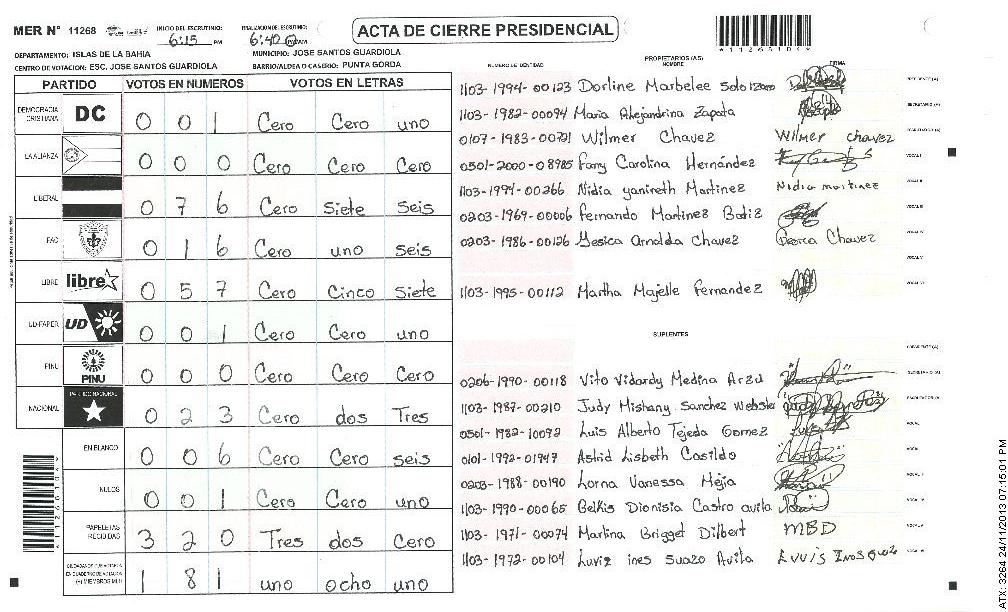 MER N° 11268 INICIO DEL ESCRUTINIO: 6:15 PM FINALIZACION DEL ESCRUTINIO: 6:40 PM
ACTA DE CIERRE PRESIDENCIAL
DEPARTAMENTO: ISLAS DE LA BAHIA MUNICIPIO: JOSE SANTOS GUARDIOLA
CENTRO DE VOTACION: ESC. JOSE SANTOS GUARDIOLA BARRIO/ALDEA O CASERIO: PUNTA GORDA
PARTIDO VOTOS EN NUMEROS VOTOS EN LETRAS
DEMOCRACIA CRISTIANA DC 0 0 1 Cero Cero uno
LA ALIANZA 0 0 0 Cero Cero Cero
LIBERAL 0 7 6 Cero Siete seis
FAC 0 1 6 Cero uno seis
LIBRE libre 0 5 7 Cero Cinco Siete
UD-FAPER UD 0 0 1 Cero Cero uno
PINU PINU 0 0 0 Cero Cero Cero
NACIONAL PARTIDO NACIONAL 0 2 3 Cero dos Tres
EN BLANCO 0 0 6 Cero Cero seis
NULOS 0 0 1 Cero Cero uno
PAPELETAS RECIBIDAS 3 2 0 Tres dos Cero
1 8 1 uno ocho uno
*11268104*
NUMERO DE IDENTIDAD PROPIETARIOS (AS) NOMBRE FIRMA
1103-1994-00123 Dorline Marbelee Solorzano PRESIDENTE (A)
1103-1982-00094 Maria Alejandrina Zapata SECRETARIO (A)
0107-1983-00721 Wilmer Chavez Wilmer chavez ESCRUTADOR (A)
0501-2000-08985 Fany Carolina Hernández VOCAL I
1103-1994-00266 Nidia yanireth Martinez Nidia martinez VOCAL II
0203-1969-00006 Fernando Martinez Batiz VOCAL III
0203-1986-00126 Yesica Arnolda Chavez Chavez VOCAL IV
VOCAL V
1103-1995-00112 Martha Majelle Fernandez VOCAL VI
SUPLENTES
PRESIDENTE (A)
0206-1990-00118 Vito Vidardy Medina Arzu SECRETARIO (A)
1103-1987-00210 Judy Mishany Sanchez Webster ESCRUTADOR (A)
0501-1982-10092 Luis Alberto Tejeda Gomez VOCAL I
0101-1992-01947 Astrid Lisbeth Casildo VOCAL II
0203-1988-00190 Lorna Vanessa Mejia VOCAL III
1103-1990-00065 Belkis Dionisia Castro avila VOCAL IV
1103-1971-00074 Martina Brigget Dilbert MBD VOCAL V
1103-1972-00104 Luviz ines Suazo Avila VOCAL VI
ATX: 3264 24/11/2013 07:15:01 PM